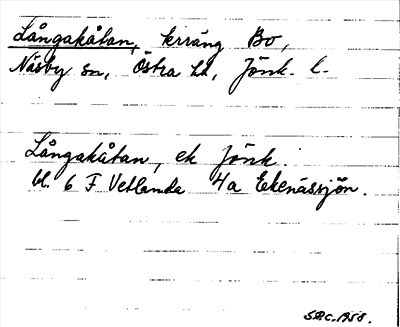 Långakåtan, kräng Bo,
Näsby sn, Östra hd, Jönk. l.
Långakåtan, ek Jönk.
bl. 6 F Vetlanda 4a Ekenässjön.
1958.